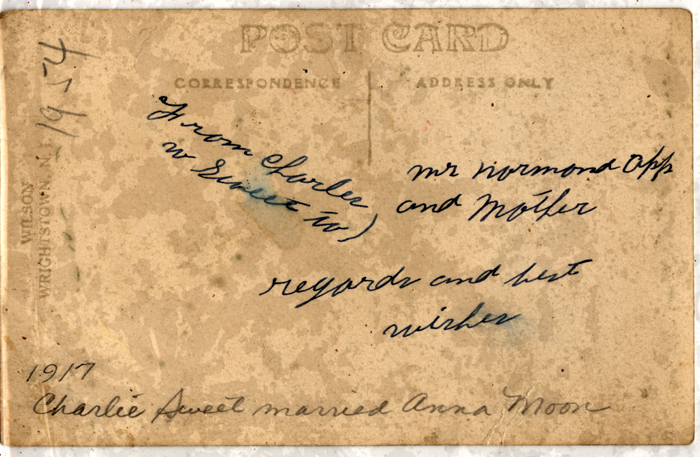 POST CARD
CORRESPONDENCE
ADDRESS ONLY
1954
WILSON
WRIGHTSTOWN, N.J.
From Charles
w Sweet to)
mr normond App
and Mother
regards and best
wishes
1917
Charlie Sweet married Anna Moon